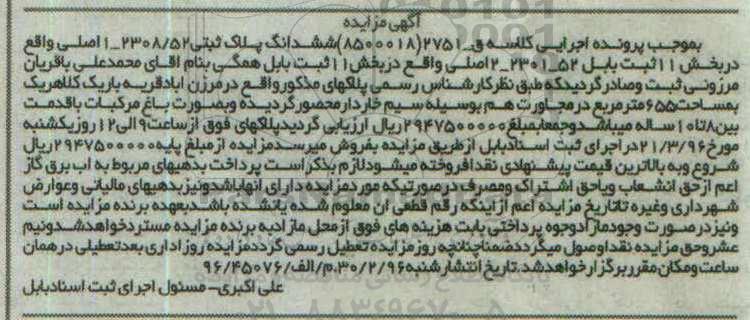 آگهی مزایده
بموجب پرونده اجرایی کلاسه ق_۲۷۵۱(۸۵۰۰۰۱۸)ششدانگ پلاک ثبتی۲۳۰۸/۵۲_۱ اصلی واقع
دربخش ۱۱ثبت بابل ۵۲_۲۳۰۱_۲اصلی واقع دربخش۱۱ثبت بابل همگی بنام اقای محمدعلی باقریان
مرزونی ثبت وصادرگردیدکه طبق نظرکارشناس رسمی پلاکهای مذکورواقع درمرزن ابادقریه باریک کلاهریک
بمساحت۶۵۵مترمربع درمجاورت هم بوسیله سیم خاردارمحصورگردیده وبصورت باغ مرکبات باقدمت
بین۸تا۱۰ساله میباشدوجمعابمبلغ۲۹۴۷۵۰۰۰۰۰ریال ارزیابی گردیدپلاکهای فوق ازساعت۹الی۱۲روزیکشنبه
مورخ۲۱/۳/۹۶دراجرای ثبت اسنادبابل ازطریق مزایده بفروش میرسدمزایده از مبلغ پایه۲۹۴۷۵۰۰۰۰۰ریال
شروع وبه بالاترین قیمت پیشنهادی نقدافروخته میشودلازم بذکراست پرداخت بدهیهای مربوط به اب برق گاز
اعم ازحق انشعاب ویاحق اشتراک ومصرف درصورتیکه موردمزایده دارای انهاباشدونیزبدهیهای مالیاتی وعوارض
شهرداری وغیره تاتاریخ مزایده اعم ازاینکه رقم قطعی ان معلوم شده یانشده باشدبعهده برنده مزایده است
ونیزدرصورت وجودمازادوجوه پرداختی بابت هزینه های فوق ازمحل مازادبه برنده مزایده مسترد‌خواهدشدونیم
عشروحق مزایده نقداوصول میگرددضمناچنانچه روزمزایده تعطیل رسمی گرددمزایده روزاداری بعدتعطیلی درهمان
ساعت ومکان مقرربرگزارخواهدشد.تاریخ انتشارشنبه۳۰/۲/۹۶.م/الف/۹۶/۴۵۰۷۶
علی اکبری–مسئول اجرای ثبت اسنادبابل